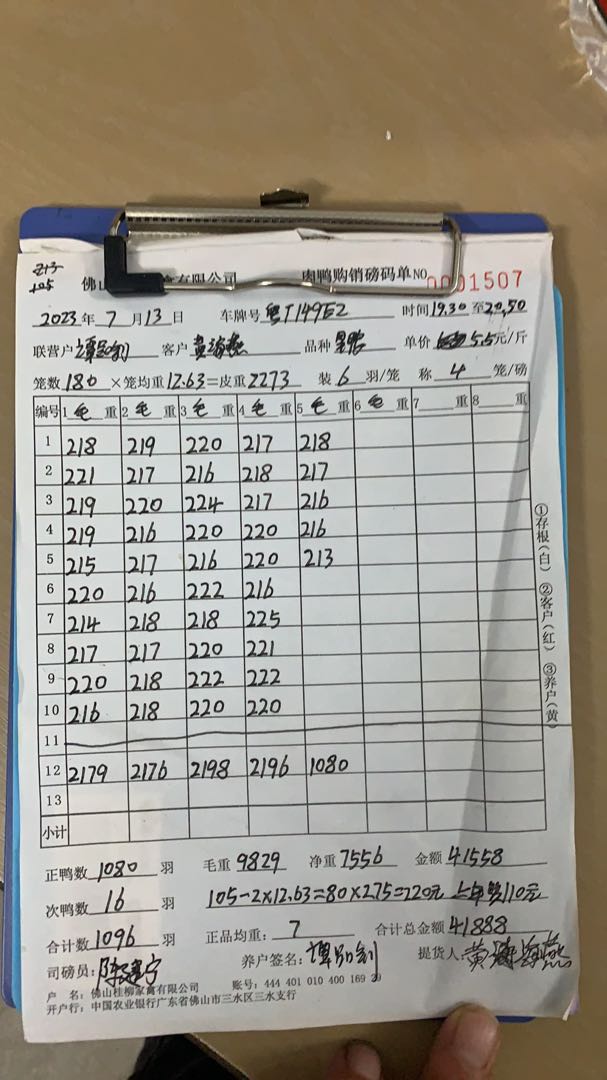 213
105
佛山 家禽有限公司 肉鸭购销磅码单 NO 0001507
2023年 7月 13日 车牌号 粤T149E2 时间 19.30 至 20.50
联营户 谭 剑 客户 黄 燕 品种 单价 5.5元/斤
笼数 180 ×笼均重 12.63=皮重 2273 装 6 羽/笼 称 4 笼/磅
编号 1 毛 重 2 毛 重 3 毛 重 4 毛 重 5 毛 重 6 毛 重 7 重 8 重
1 218 219 220 217 218
2 221 217 216 218 217
3 219 220 224 217 216
4 219 216 220 220 216
5 215 217 216 220 213
6 220 216 222 216
7 214 218 218 225
8 217 217 220 221
9 220 218 222 222
10 216 218 220 220
11
12 2179 2176 2198 2196 1080
13
小计
正鸭数 1080 羽 毛重 9829 净重 7556 金额 41558
次鸭数 16 羽 105-2×12.63=80×2.75=220元 110元
合计数 1096 羽 正品均重: 7 合计总金额 41888
司磅员: 陈 宁 养户签名: 谭 剑 提货人: 黄 燕
户 名: 佛山桂柳家禽有限公司 账号: 444 401 010 400 169 29
开户行: 中国农业银行广东省佛山市三水区三水支行
①存根(白) ②客户(红) ③养户(黄